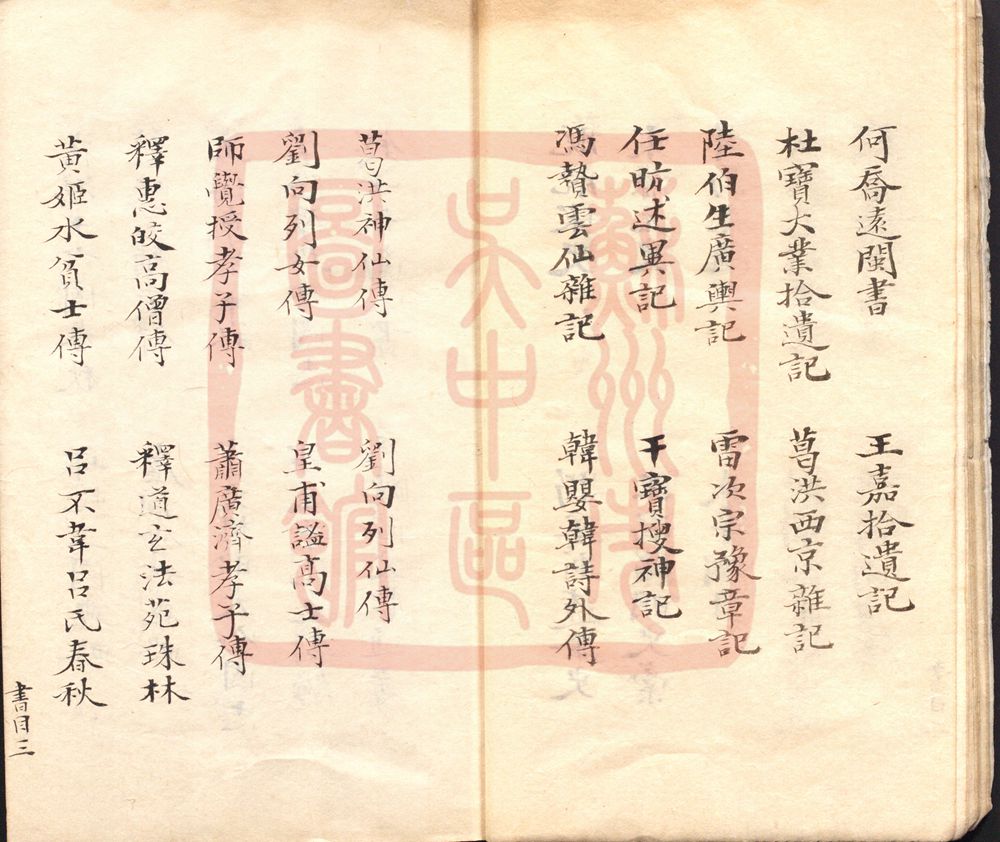 何喬遠閩書 王嘉拾遺記
杜寶大業拾遺記 葛洪西京雜記
陸伯生廣輿記 雷次宗豫章記
任昉述異記 干寶搜神記
馮贄雲仙雜記 韓嬰韓詩外傳
葛洪神仙傳 劉向列仙傳
劉向列女傳 皇甫謐高士傳
師覺授孝子傳 蕭廣濟孝子傳
釋惠皎高僧傳 釋道玄法苑珠林
黃姬水貧士傳 呂不韋呂氏春秋
書目三
蘇州市
吳中區
圖書館